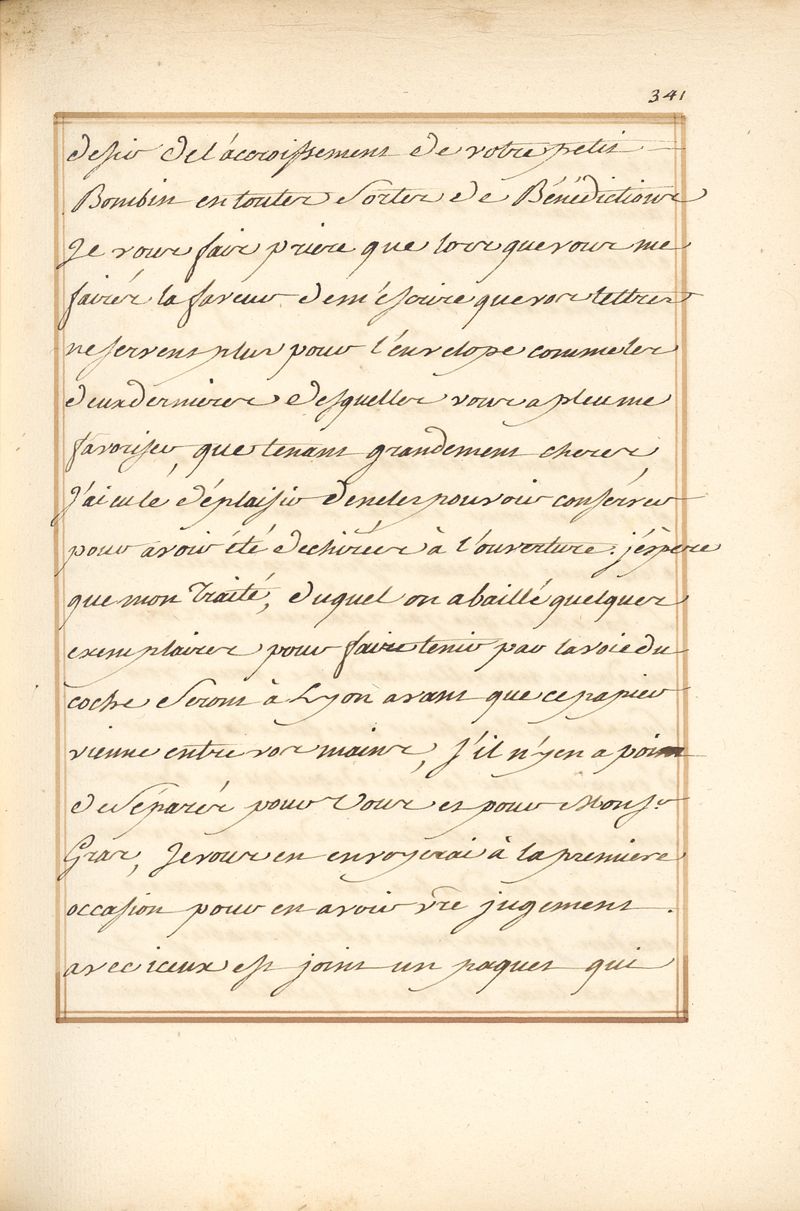 341
desir de l'accroissement de votre petit
Bombin en toutes Sortes de Bénédictions
Je vous fais priere que lors que vous me
fairés la faveur de m'éscrire que vos lettres
ne servent plus pour l'énvelope comme les
deux dernieres desquelles vous a pleu me
favoriser, que tenant grandement cheres,
j'ai eu lé déplaisir de ne les pouvoir consérver
pour avoir été dechirées à l'ouverture. j'éspere
que mon Traité, duquel on a baillé quelques
exemplaires pour faire tenir par la voie du
coche Seront à Lyon avant que ce papier
vienne entre vos mains, s'il n'y en a point
de Séparés pour Vous et pour Monsr
Gras, Je vous en envoyerai à la premiere
occasion pour en avoir vre jugement.
avec iceux est joint un paquet qui